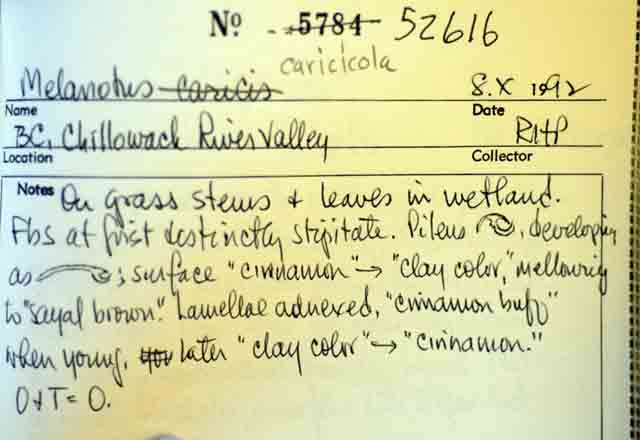 No. 5784 52616
caricicola
Melanotus caricis 8.X 1992
Name Date
BC, Chillowack River Valley RHP
Location Collector
Notes On grass stems & leaves in wetland.
Fbs at first distinctly stipitate. Pileus , developing
as ; surface "cinnamon" → "clay color," mellowing
to "sayal brown." Lamellae adnexed, "cinnamon buff"
when young, later "clay color" → "cinnamon."
O & T = O.